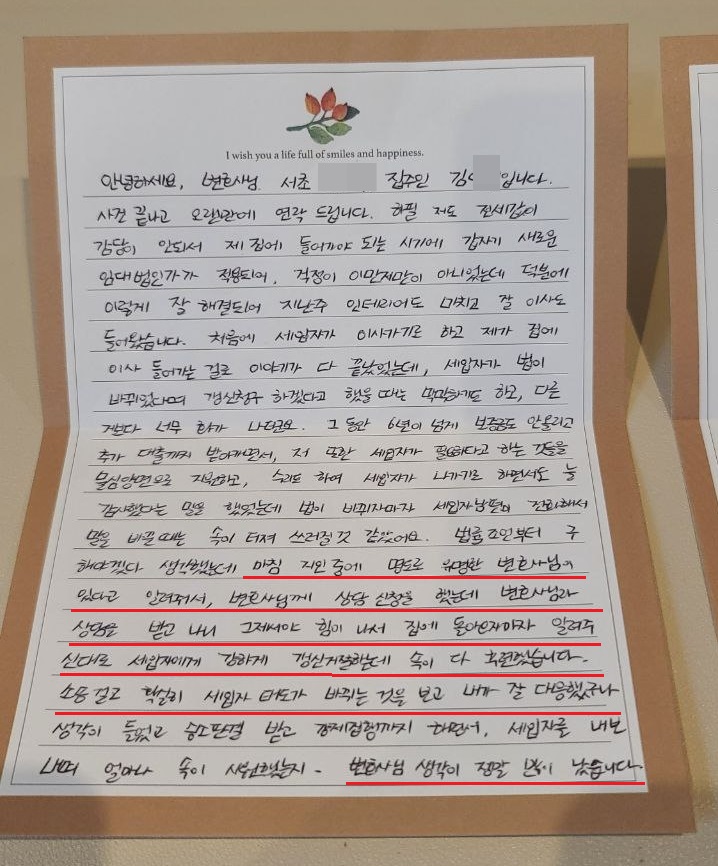 I wish you a life full of smiles and happiness.
안녕하세요, 변호사님. 서초 집주인 김 입니다.
사건 끝나고 오랜만에 연락 드립니다. 하필 저도 전세값이
감당이 안되서 제 집에 들어가야 되는 시기에 갑자기 새로운
임대법인가가 적용되어, 걱정이 이만저만이 아니었는데 덕분에
이렇게 잘 해결되어 지난주 인테리어도 마치고 잘 이사도
들어왔습니다. 처음에 세입자가 이사가기로 하고 제가 집에
이사 들어가는 걸로 이야기가 다 끝났었는데, 세입자가 법이
바뀌었다며 갱신청구 하겠다고 했을 때는 막막하기도 하고, 다른
것보다 너무 화가 나더군요. 그 동안 6년이 넘게 보증금도 안올리고
추가 대출까지 받아가면서, 저 또한 세입자가 필요하다고 하는 것들을
물심양면으로 지원하고, 수리도 하여 세입자가 나가기로 하면서도 늘
감사했다는 말을 했었는데 법이 바뀌자마자 세입자남편이 전화해서
말을 바꿀 때는 속이 터져 쓰러질것 같았어요. 법률조언부터 구
해야겠다 생각했는데 마침 지인 중에 명도로 유명한 변호사님이
있다고 알려줘서, 변호사님께 상담 신청을 했는데 변호사님과
상담을 받고 나니 그제서야 힘이 나서 집에 돌아오자마자 알려주
신대로 세입자에게 강하게 갱신거절하는데 속이 다 후련했습니다.
소송 걸고 확실히 세입자 태도가 바뀌는 것을 보고 내가 잘 대응했구나
생각이 들었고 승소판결 받고 강제집행까지 하면서, 세입자를 내보
내며 얼마나 속이 시원했는지- 변호사님 생각이 정말 많이 났습니다.